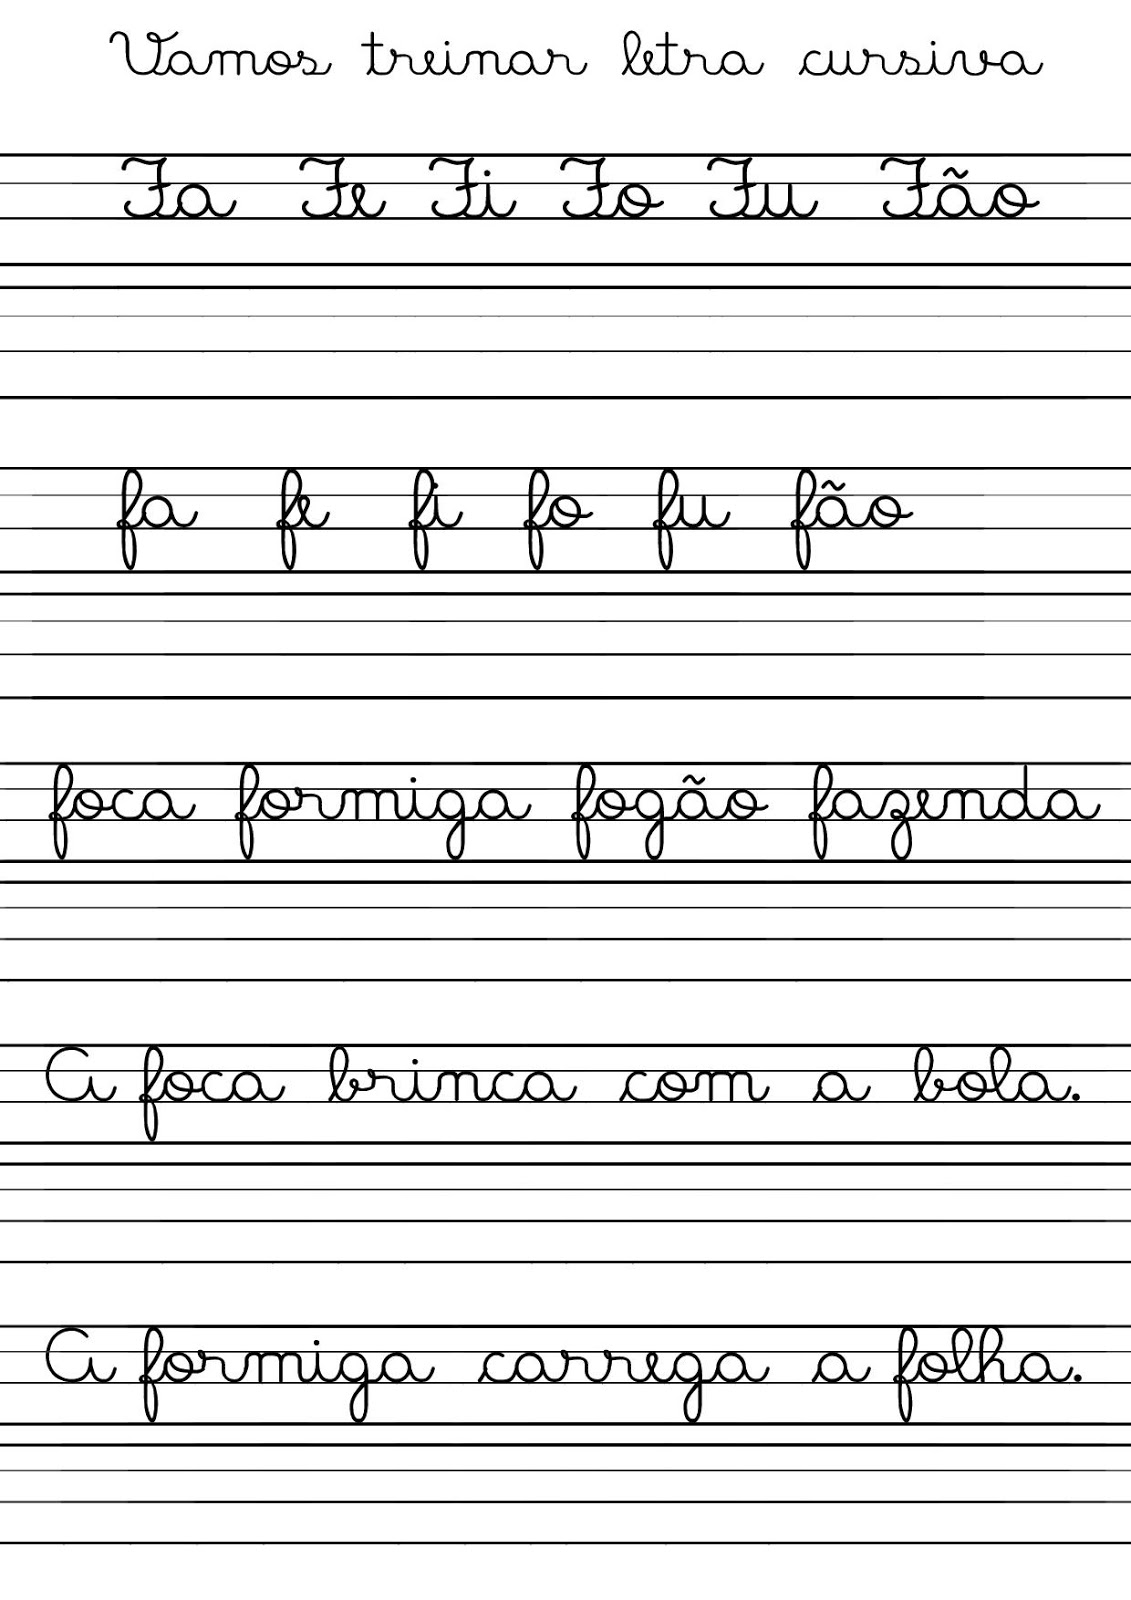 Vamos treinar letra cursiva
Fa Fe Fi Fo Fu Fão
fa fe fi fo fu fão
foca formiga fogão fazenda
A foca brinca com a bola.
A formiga carrega a folha.